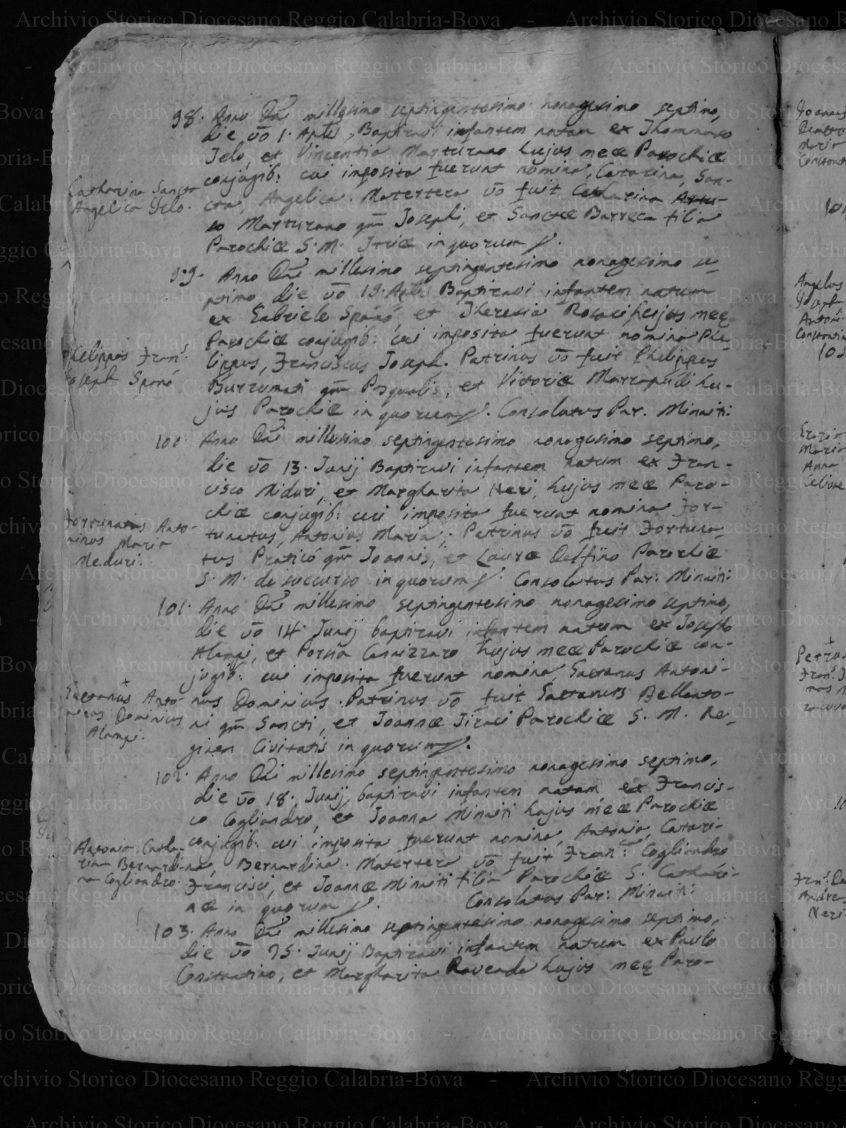 98. Anno Dni millesimo septingentesimo nonagesimo septimo,
die vo 1. Aplis, Baptizavi infantem natam ex Thommaso
Jelo, et Vincentia Marturano hujus meæ Parochiæ
conjugib: cui imposita fuerunt nomina, Catarina, San-
cta, Angelica. Matertera vo fuit Catharina
Marturano qm Joseph, et Sanctæ Barreca filia
Parochiæ S. M. Itriæ in quorum
Catharina Sancta
Angelica Jelo.
99. Anno Dni millesimo septingentesimo nonagesimo se-
ptimo, die vo 19. Aplis Baptizavi infantem natum
ex Gabriele Spanó et Theresia hujus meę
Parochiæ conjugib: cui imposita fuerunt nomina Phi-
lippus, Franciscus Joseph. Patrinus vo fuit Philippus
Burrumati qm Pasqualis, et Victoriæ hu-
jus Parochiæ in quorum. Consolatus Par. Minniti
Philippus Fran:
Joseph Spanó
100. Anno Dni millesimo septingentesimo nonagesimo septimo,
die vo 13. Junij Baptizavi infantem natum ex Fran-
cisco Miduri, et Margharita Neri, hujus meæ Paro-
chiæ conjugib: cui imposita fuerunt nomina For-
tunatus, Antonius Maria. Patrinus vo fuit Fortuna-
tus Praticó qm Joannis, et Lauræ Delfino Parochiæ
S. M. de soccurso in quorum. Consolatus Par: Minniti
Fortunatus Anto-
ninus Maria
Meduri.
101. Anno Dni millesimo septingentesimo nonagesimo septimo,
die vo 14. Junij baptizavi infantem natum ex Joseph
Alampi et Porsia Cannizzaro hujus meæ Parochiæ con-
jugib: cui imposita fuerunt nomina, Gaetanus Antoni-
nus Dominicus. Patrinus vo fuit Gaetanus Bellanto-
ni qm Sancti, et Joannæ Parochiæ S. M. Re-
ginæ Civitatis in quorum.
Gaetanus Anto-
ninus Dominicus
Alampi.
102. Anno Dni millesimo septingentesimo nonagesimo septimo,
die vo 18. Junij baptizavi infantem natam ex Francis-
co Cogliandro, et Joanna Minniti hujus meæ Parochiæ
conjugib: cui imposita fuerunt nomina Antonia, Catari-
na, Bernardina. Matertera vo fuit Fran: Cogliandro
Francisci, et Joannæ Minniti filia Parochiæ S. Cathari-
næ in quorum. Consolatus Par: Minniti
Antonia Catha-
rina Bernardina
Cogliandro.
103. Anno Dni millesimo septingentesimo nonagesimo septimo,
die vo 25. Junij Baptizavi infantem natum ex Paulo
Constantino, et Margharita Ravenda hujus meę Paro-
Joannes
Maria
Constant
Angelus
Joseph
Antoni
Constantin
Maria
Anna
Petrus
Fran. J
Andre
Neri
Archivio Storico Diocesano Reggio Calabria-Bova